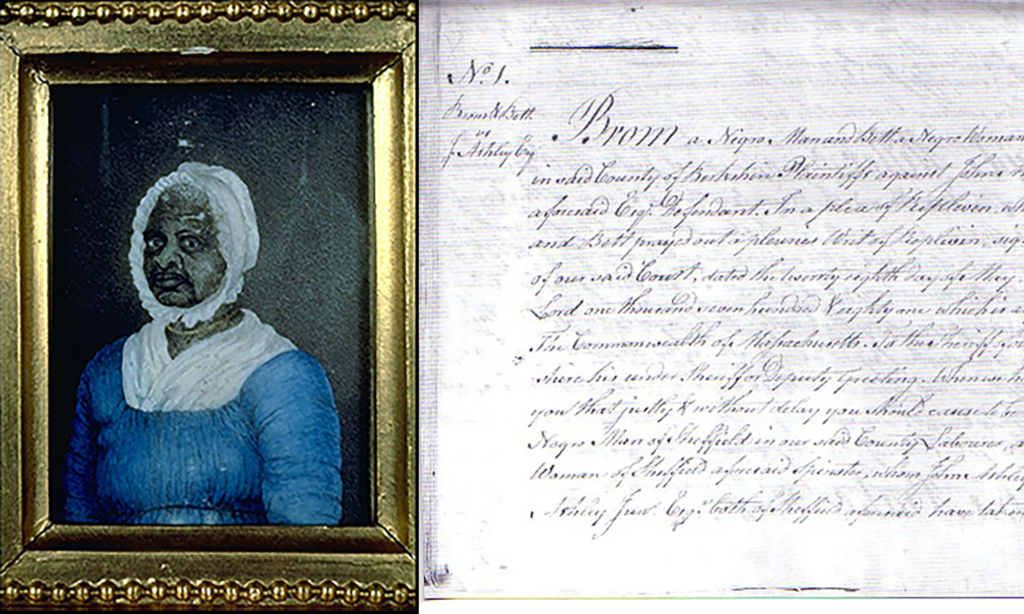 No. 1.
Brom & Bett
vs
J Ashley Esq
Brom a Negro Man and Bett a Negro Woman
in said County of Berkshire Plaintiffs against John
aforesaid Esqr. Defendant. In a plea of Replevin,
and Bett prayed out a pluries Writ of Replevin,
of our said Court, dated the twenty eighth day of May
Lord one thousand seven hundred & eighty one which is
The Commonwealth of Massachusetts. To the Sheriff
shire his under Sheriff or Deputy Greeting. Whereas
you that justly & without delay you should cause to
Negro Man of Sheffield in our said County Labourer,
Woman of Sheffield aforesaid Spinster, whom John Ashley
Ashley Junr. Esqr. both of Sheffield aforesaid have taken